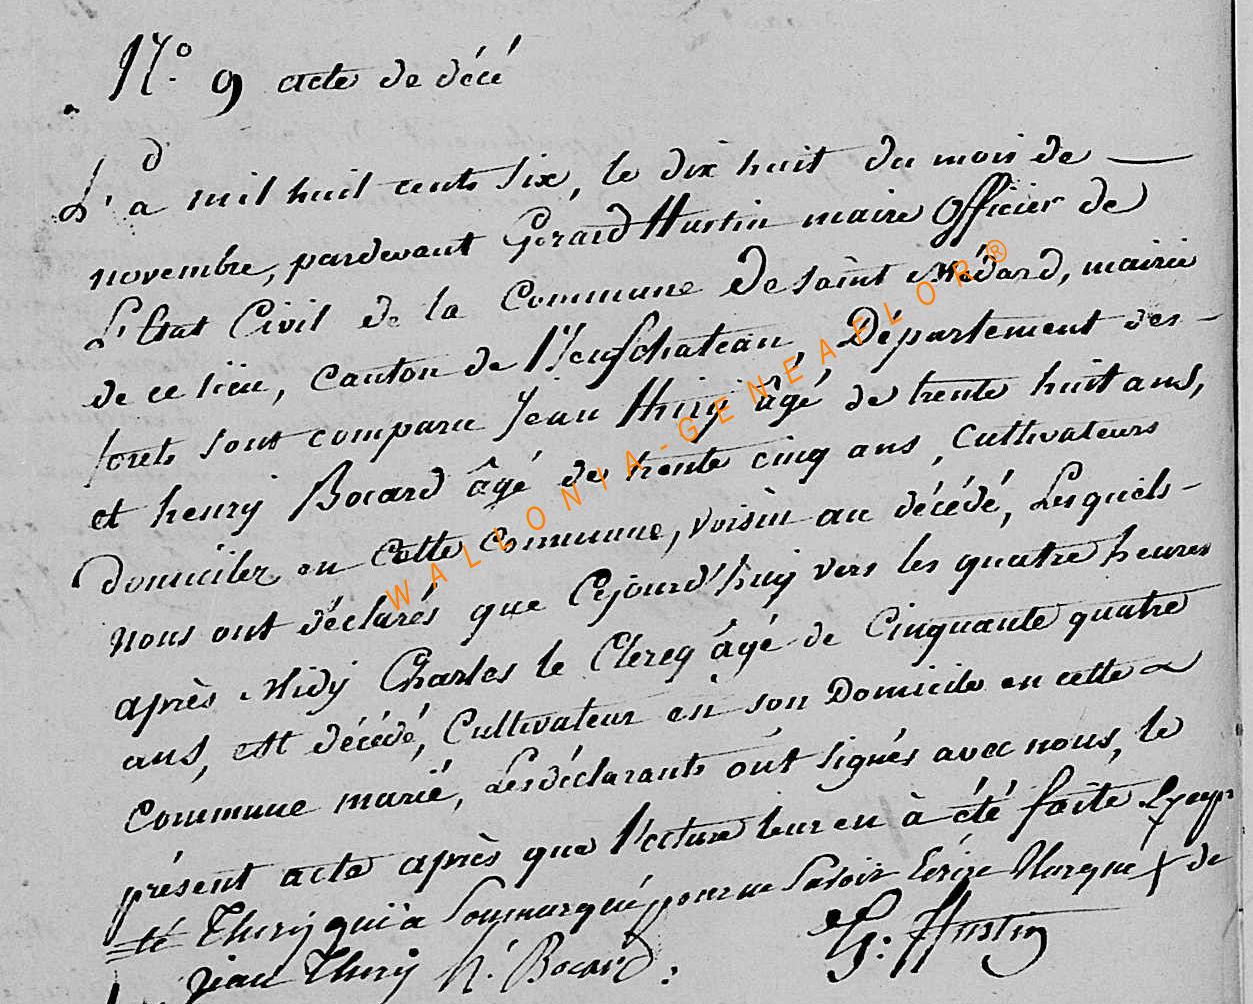 N.° 9 acte de décé
L'a d mil huit cents six, le dix huit du mois de
novembre, pardevant Gérard Hustin maire officier de
L'Etat Civil de la Commune de saint Médard, mairie
de ce lieu, Canton de Neufchateau, Département des-
forets sont comparu Jean Thiry âgé de trente huit ans,
et henry Bocard âgé de trente cinq ans, Cultivateurs
domicilez en Cette Commune, voisin au décédé, Lesquels-
nous ont déclarés que Cejourd'huy vers les quatre heures
après Midy Charles le Clercq âgé de Cinquante quatre
ans, est décédé, Cultivateur en son Domicile en cette
Commune marié, Les déclarants ont signés avec nous, le
présent acte après que Lecture leur en à été faite Excep
=té Thiry qui à Soumarqué pour ne Savoir Ecrire Marque X de
jean Thiry h. Bocard. G. Hustin
WALLONIA-GENEAFLOR®